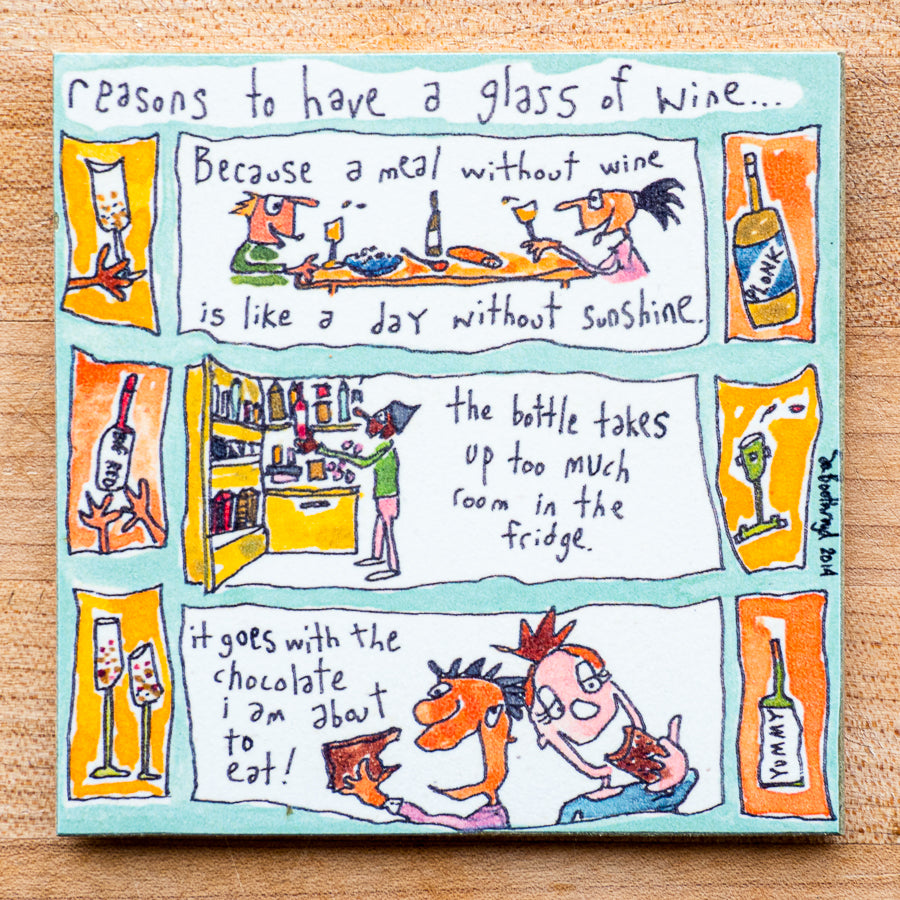 reasons to have a glass of wine...
Because a meal without wine
is like a day without sunshine.
PLONK
BIG RED
the bottle takes
up too much
room in the
fridge.
it goes with the
chocolate
i am about
to
eat!
YUMMY
2014